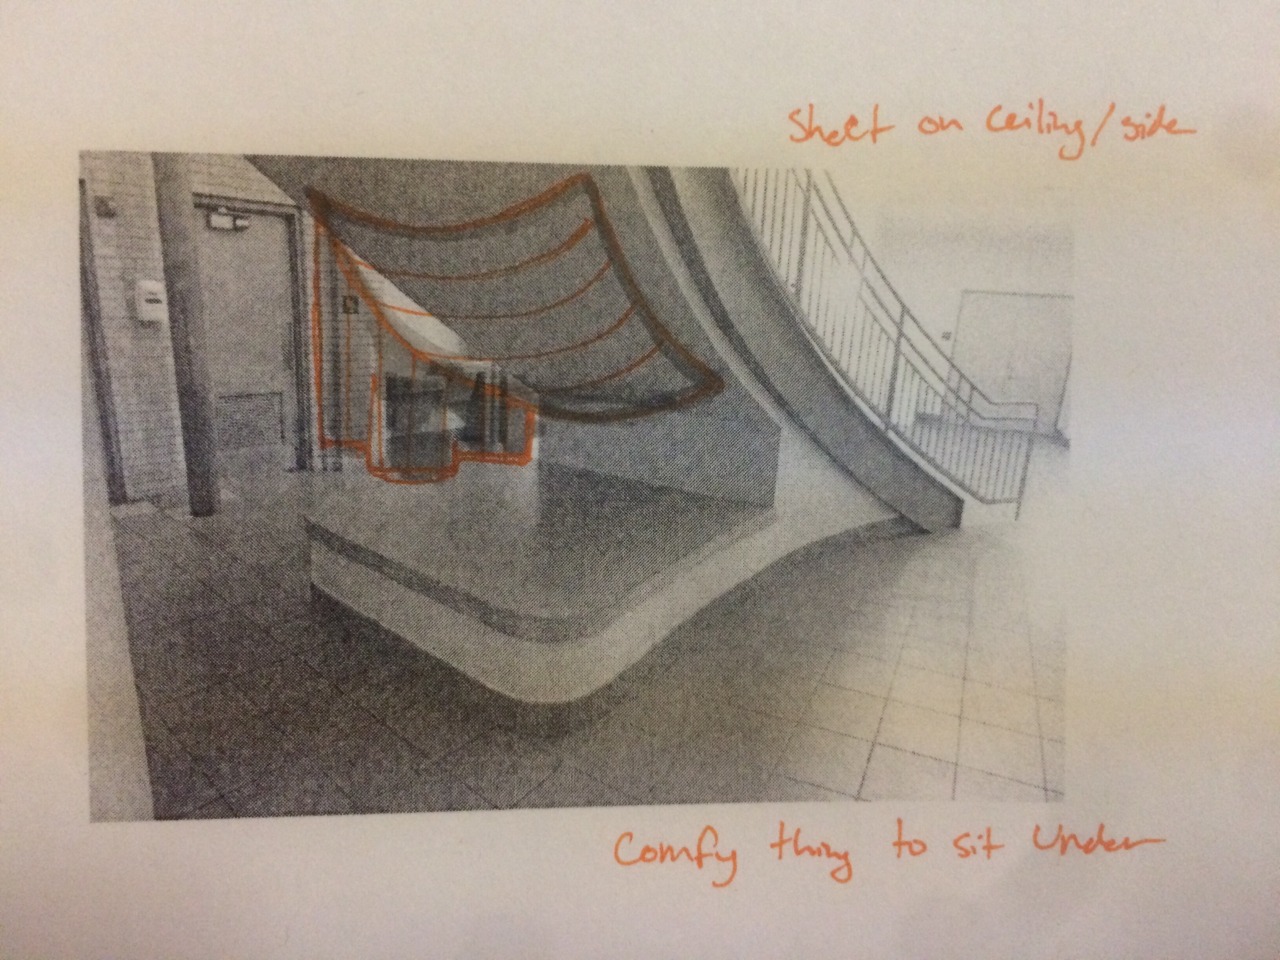 Sheet on ceiling/side
Comfy thing to sit under